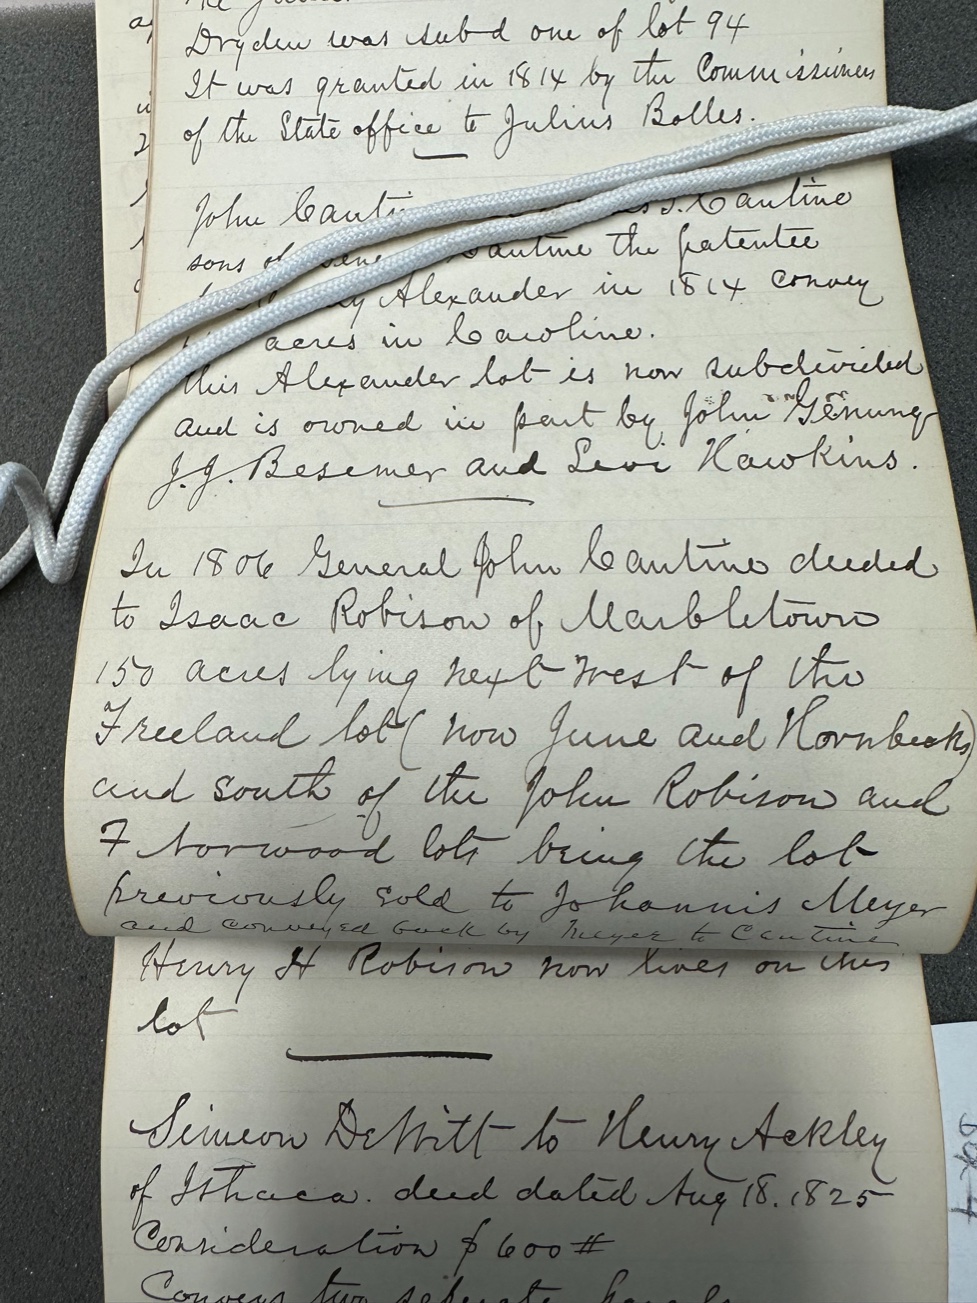 Dryden was subd one of lot 94
It was granted in 1814 by the Commissioners
of the State office to Julius Bolles.
John Canti Cantine
sons of Cantine the patentee
Alexander in 1814 convey
acres in Caroline.
this Alexander lot is now subdivided
and is owned in part by John Genung
J. J. Besemer and Levi Hawkins.
In 1806 General John Cantine deeded
to Isaac Robison of Marbletown
150 acres lying next West of the
Freeland lot (now June and Hornbecks)
and south of the John Robison and
F Norwood lots being the lot
previously sold to Johannis Meyer
and conveyed back by Meyer to Cantine
Henry H Robison now lives on this
lot
Simeon DeWitt to Henry Ackley
of Ithaca. deed dated Aug 18. 1825
Consideration $600#
Conveys two seperate